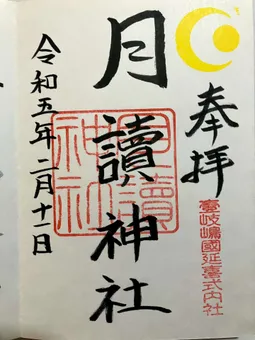 奉拝
壹岐嶋國延喜式内社
月讀神社
月讀神社
令和五年二月十一日